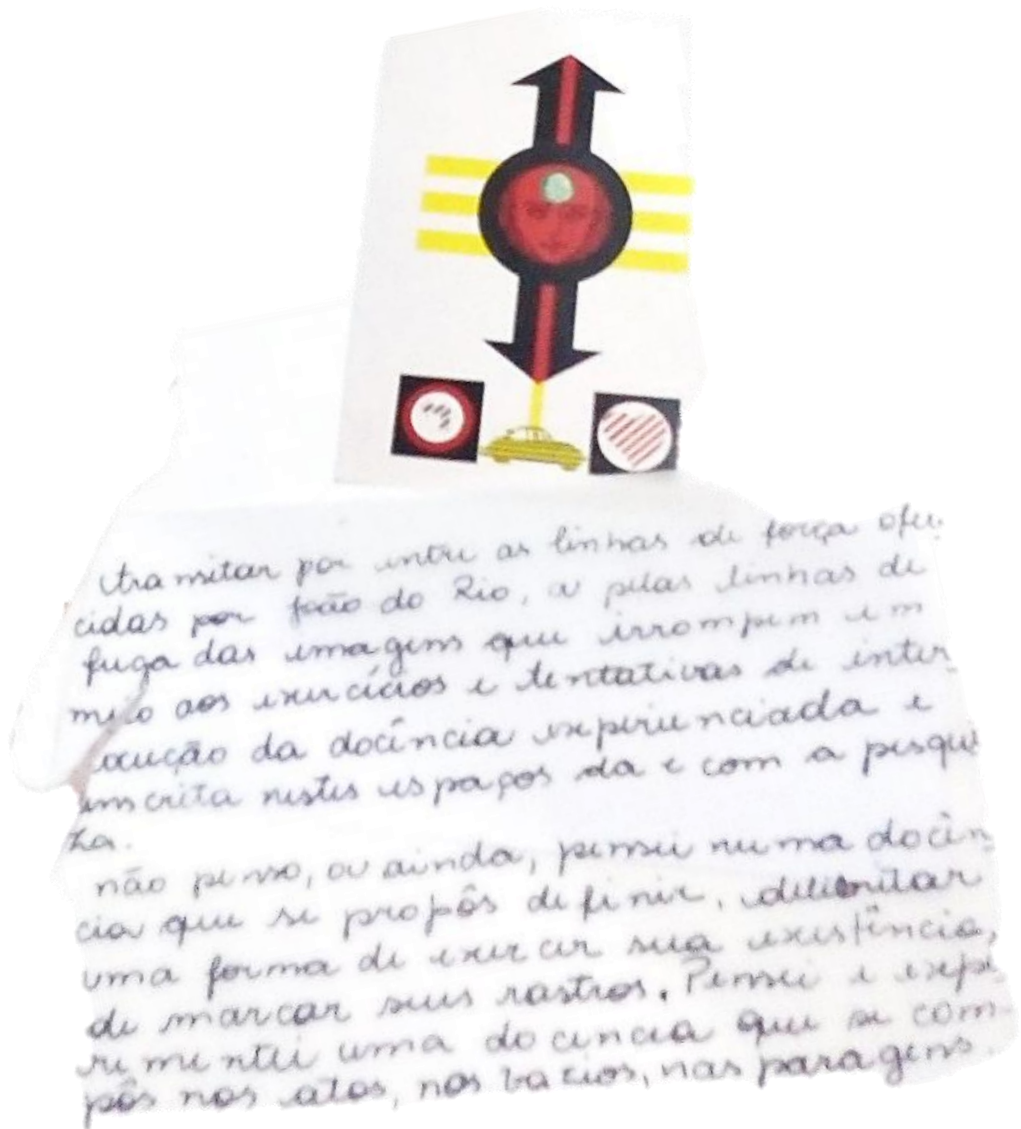 transitar por entre as linhas de força ofe-
cidas por João do Rio, e pelas linhas de
fuga das imagens que irrompem em
meio aos exercícios e tentativas de inter-
locução da docência experienciada e
inscrita nestes espaços da e com a pesqui
za.
não penso, ou ainda, pensei numa docên-
cia que se propôs definir, delimitar
uma forma de exercer sua existência,
de marcar seus rastros. Pensei e expe-
rimentei uma docencia que se com-
pôs nos atos, nos vazios, nas paragens.